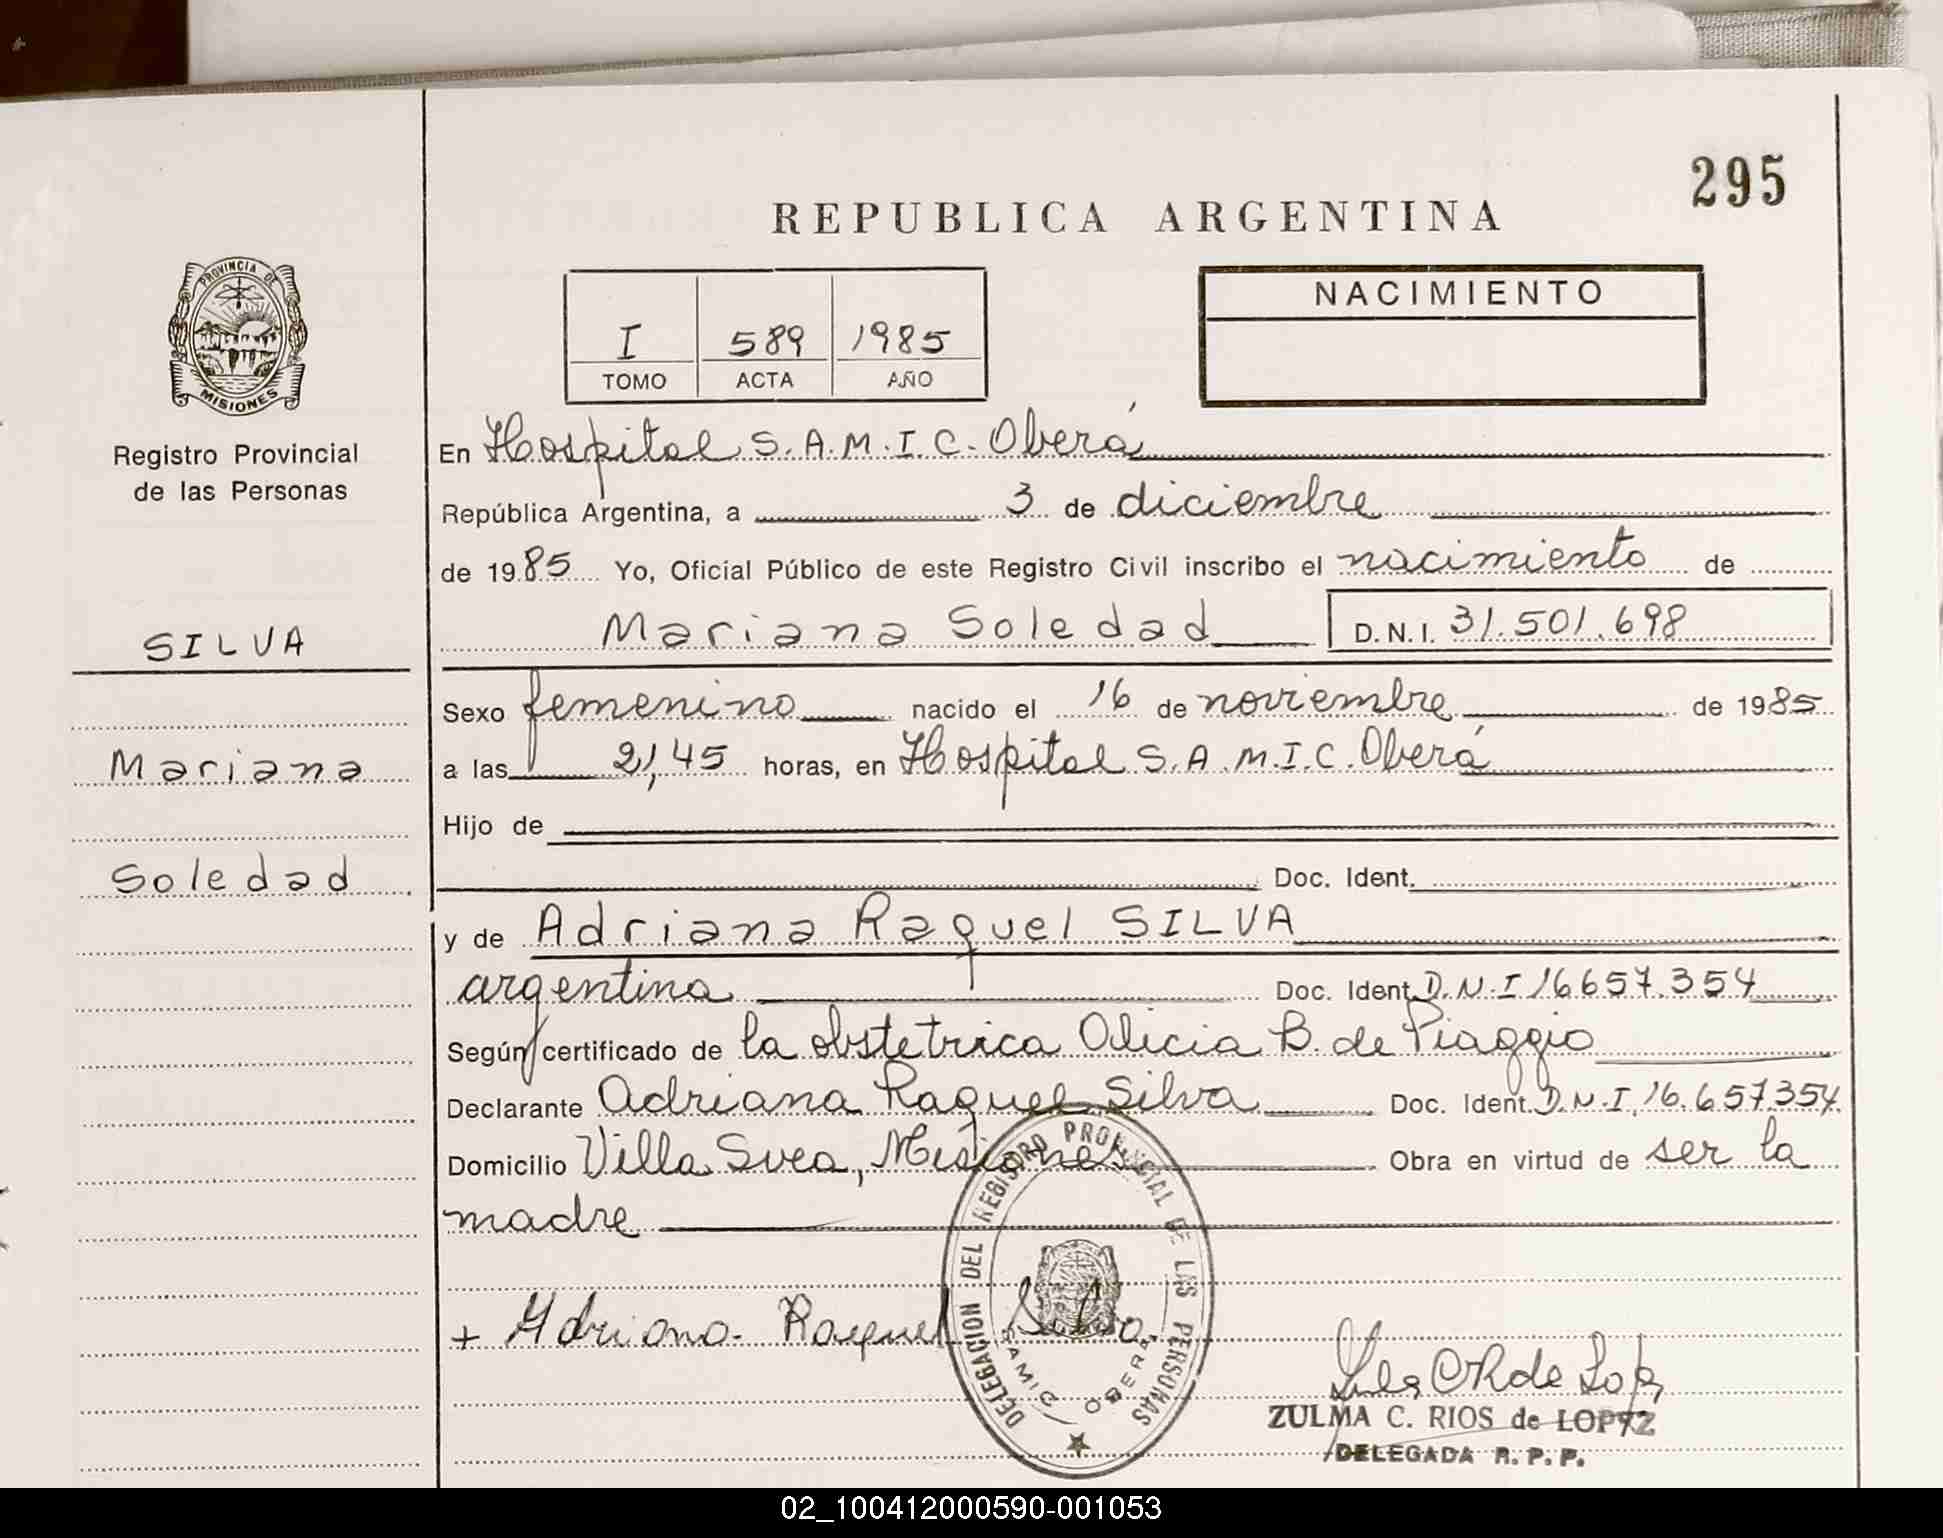 295
REPUBLICA ARGENTINA
PROVINCIA DE
MISIONES
I 589 1985
TOMO ACTA AÑO
NACIMIENTO
Registro Provincial
de las Personas
SILVA
Mariana
Soledad
En Hospital S.A.M.I.C. Oberá
República Argentina, a 3 de diciembre
de 1985 Yo, Oficial Público de este Registro Civil inscribo el nacimiento de
Mariana Soledad D.N.I. 31.501.698
Sexo femenino nacido el 16 de noviembre de 1985
a las 21,45 horas, en Hospital S.A.M.I.C. Oberá
Hijo de
Doc. Ident.
y de Adriana Raquel SILVA
argentina Doc. Ident. D.N.I 16657.354
Según certificado de la obstetrica Alicia B. de Piaggio
Declarante Adriana Raquel Silva Doc. Ident. D.N.I. 16.657.354
Domicilio Villa Svea, Misiones Obra en virtud de ser la
madre
+ Adriana Raquel Silva
DELEGACION DEL REGISTRO PROVINCIAL DE LAS PERSONAS
SAMIC OBERA
ZULMA C. RIOS de LOPEZ
DELEGADA R. P. P.
02_100412000590-001053